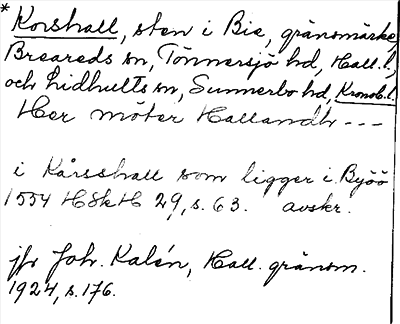 * Korshall, sten i Bie, gränsmärke,
Breareds sn, Tönnersjö hd, Hall. l.,
och Lidhults sn, Sunnerbo hd, Kronob. l.
Her möter Hallandh ---
i Kårsshall som ligger i Byöö
1554 HSkH 29, s. 63. avskr.
jfr Joh. Kalén, Hall. gränsm.
1924, s. 176.